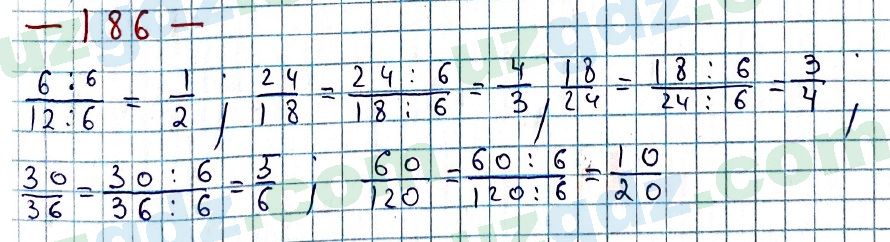 — 186 —
6 : 6 / 12 : 6 = 1/2 ; 24/18 = 24 : 6 / 18 : 6 = 4/3 ; 18/24 = 18 : 6 / 24 : 6 = 3/4 ;
30/36 = 30 : 6 / 36 : 6 = 5/6 ; 60/120 = 60 : 6 / 120 : 6 = 10/20
uzgdz.com